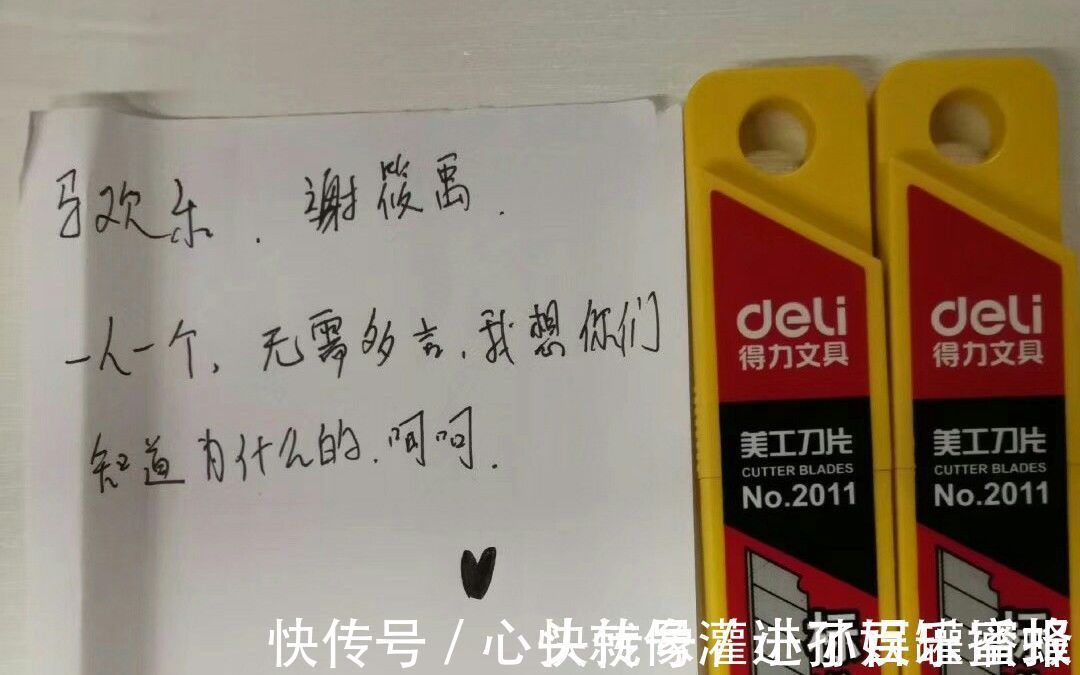 马欢乐. 谢筱禹.
一人一个, 无需多言, 我想你们
知道为什么的, 呵呵.
deli
得力文具
美工刀片
CUTTER BLADES
No.2011
deli
得力文具
美工刀片
CUTTER BLADES
No.2011
快传号 / 心